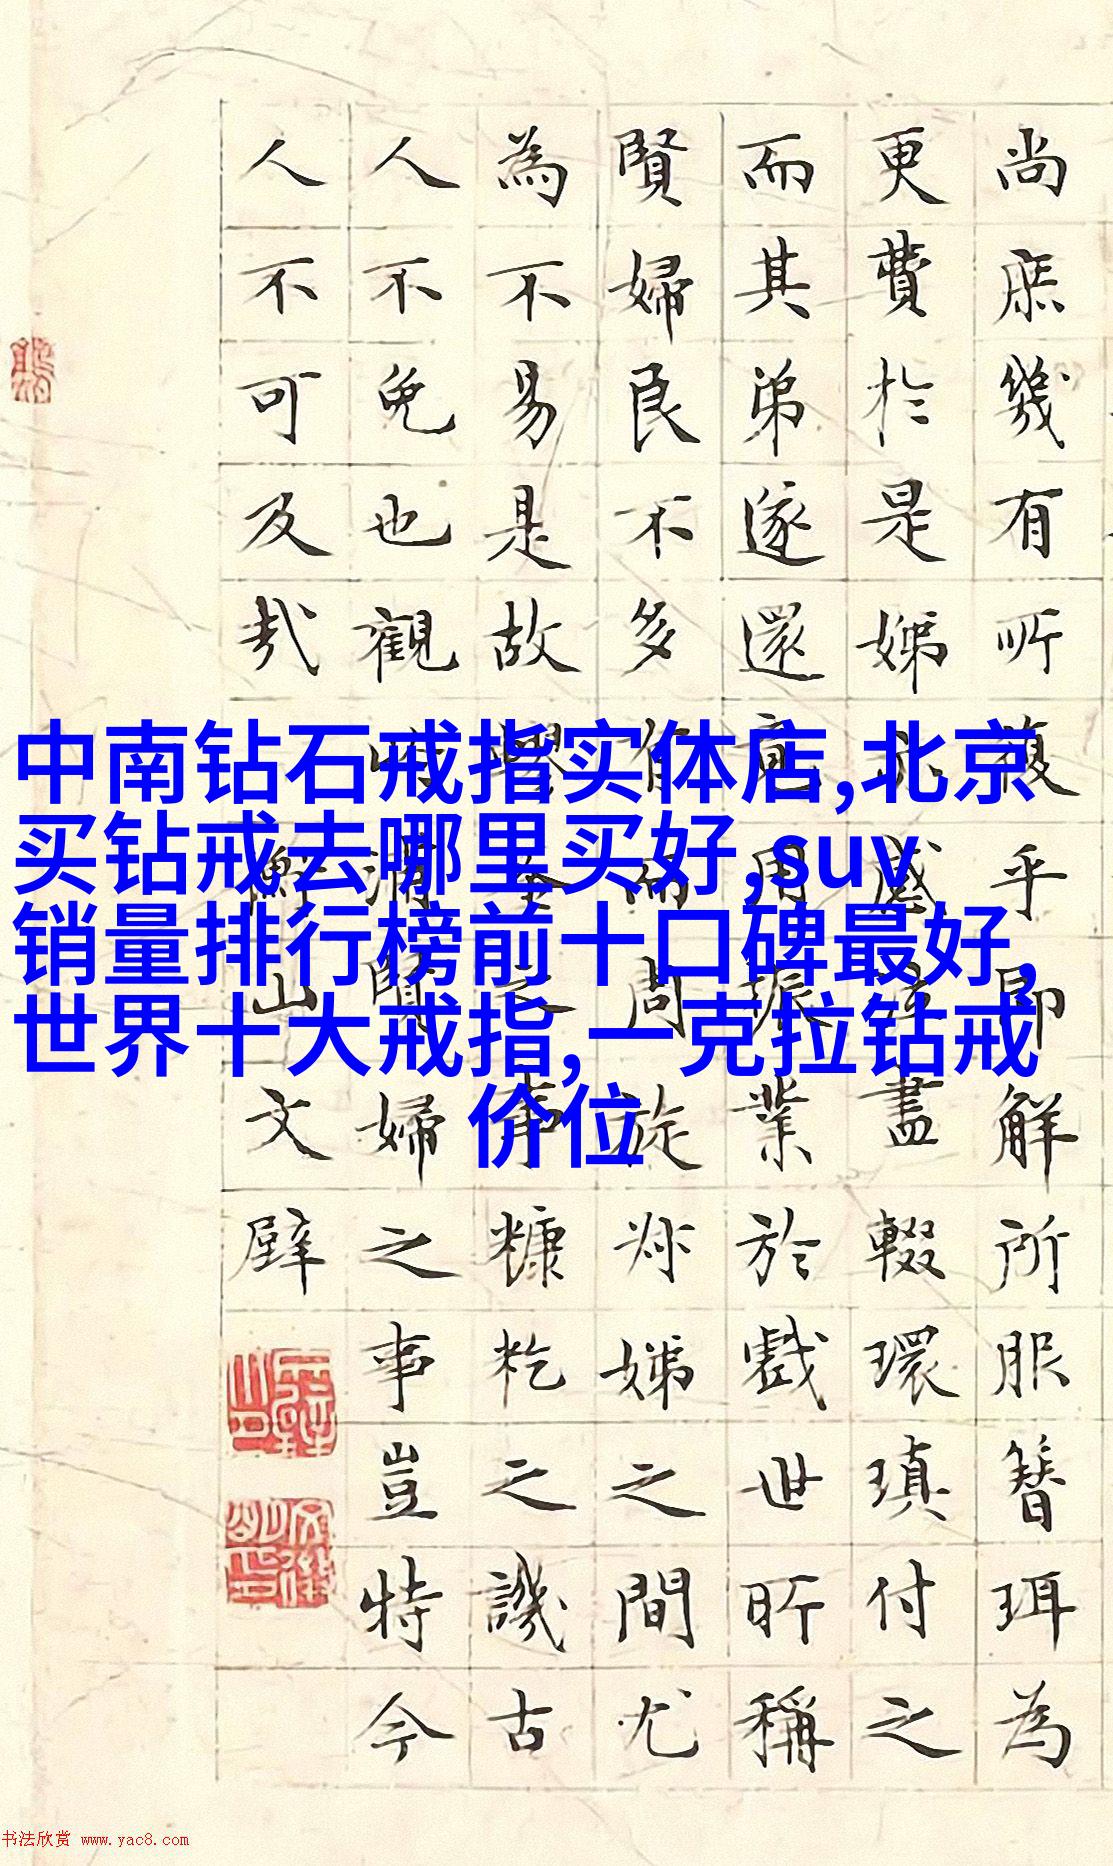 中南钻石戒指实体店,北京
买钻戒去哪里买好,suv
销量排行榜前十口碑最好,
世界十大戒指,一克拉钻戒
价位
尚庶幾有所復乎即解所服簪珥為
更費於是娣感泣盡輟環瑱付之
而其弟遂還竟用振業於戲世所稱
賢婦良不多有而周旋姒娣之間尤
為不易是故之事糠粃之譏古
人不免也觀謂賢婦之事豈特今
人不可及哉
衡山文璧
书法欣赏 www.yac8.com